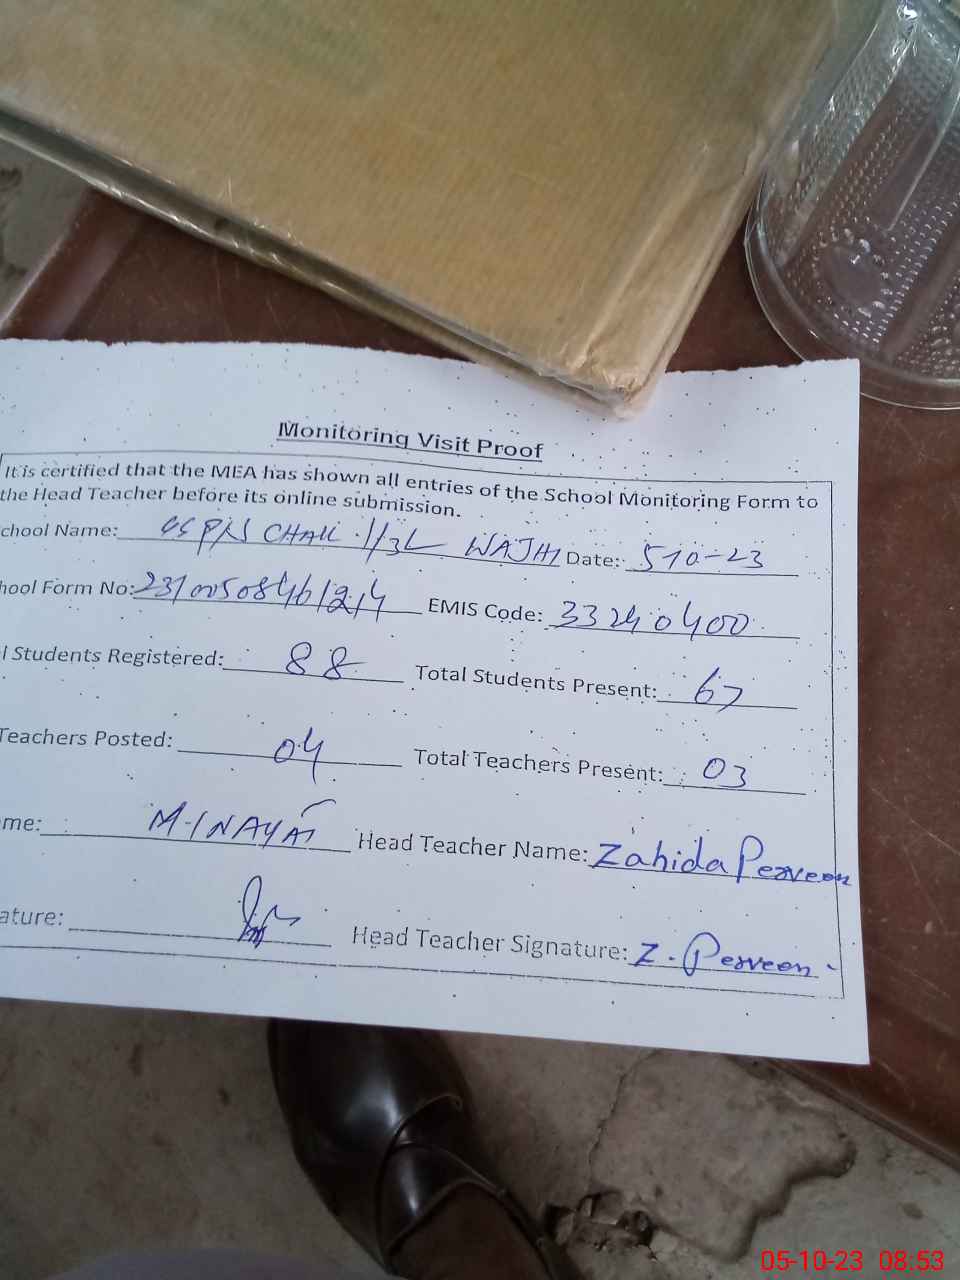 Monitoring Visit Proof
It is certified that the MEA has shown all entries of the School Monitoring Form to
the Head Teacher before its online submission.
chool Name: CHAK 11/3L WAJHI Date: 5-10-23
hool Form No: EMIS Code: 33240400
l Students Registered: 88 Total Students Present: 67
Teachers Posted: 04 Total Teachers Present: 03
me: M-INAYAT Head Teacher Name: Zahida Perveen
ature: Head Teacher Signature: Z. Perveen.
05-10-23 08:53